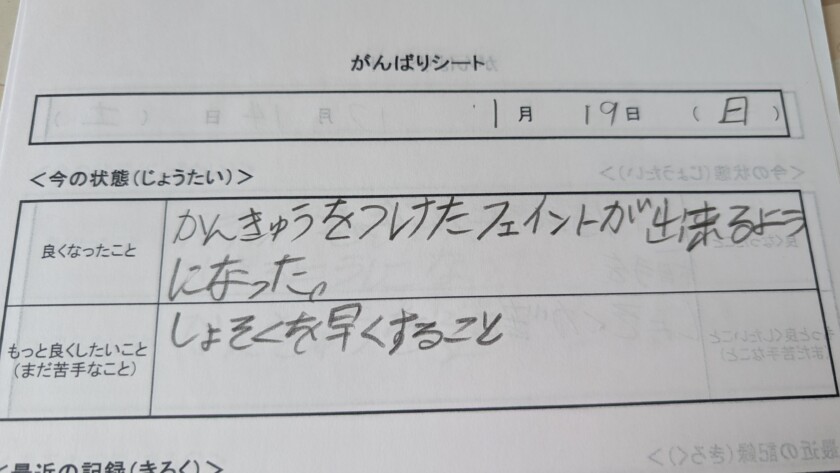 がんばりシート
1月 19日 (日)
<今の状態(じょうたい)>
良くなったこと
かんきゅうをつけたフェイントが出来るよう
になった。
もっと良くしたいこと
(まだ苦手なこと)
しょそくを早くすること
<最近の記録(きろく)>